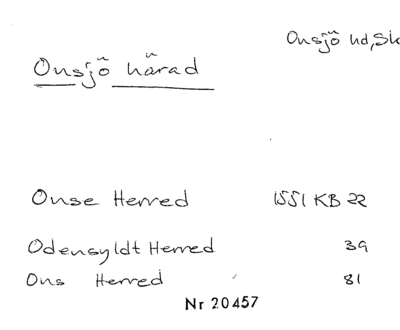 Onsjö hd, Sk
Onsjö härad
Onse Herred 1551 KB 22
Odensyldt Herred 39
Ons Herred 81
Nr 20457